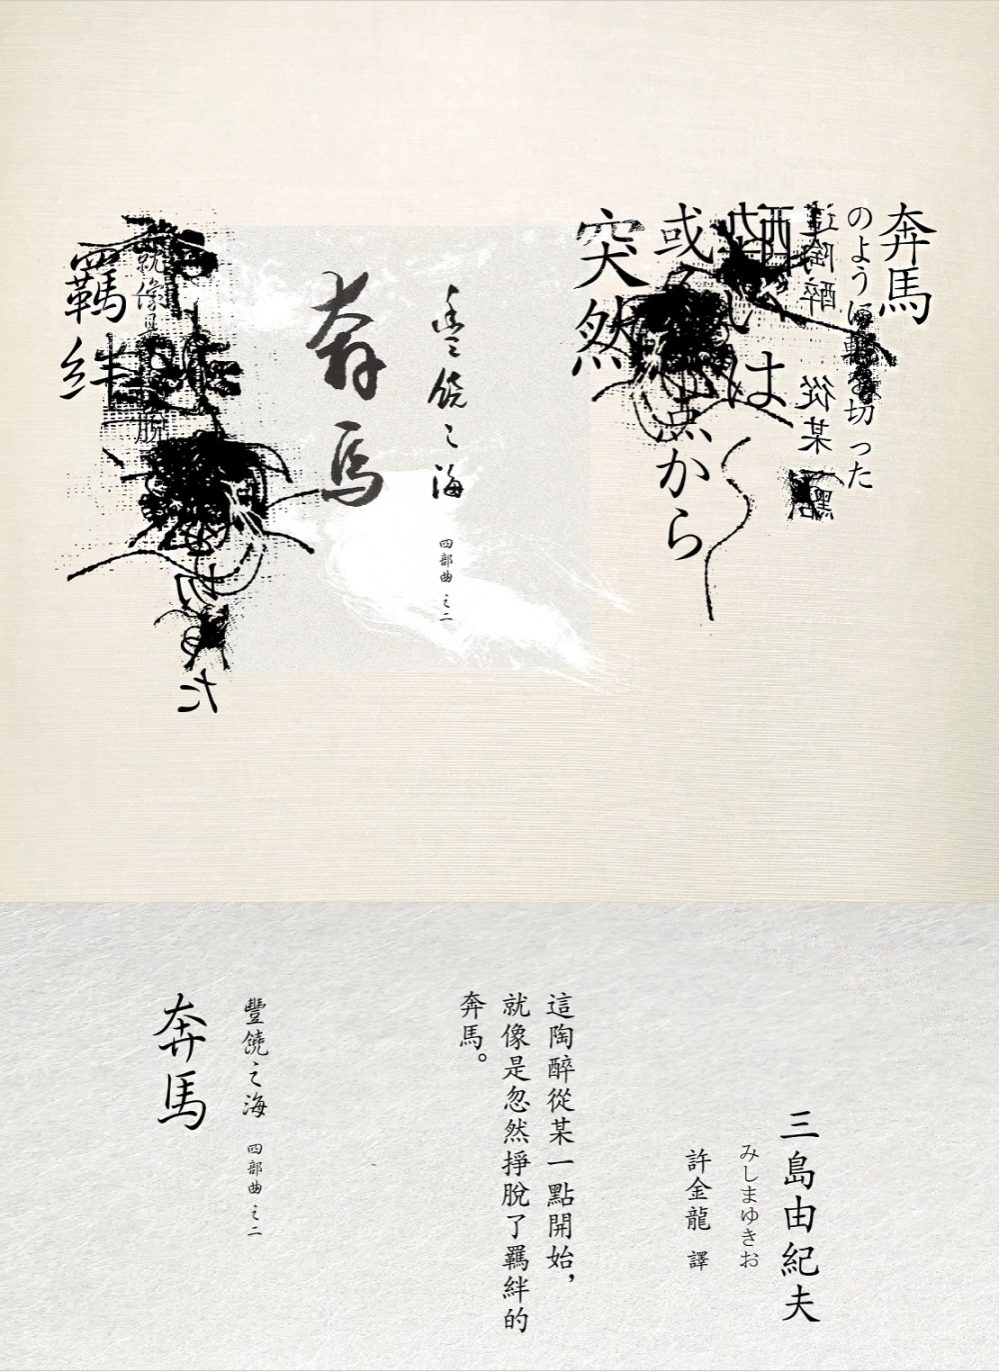 奔馬
のように
切った
這陶醉
從某
一點
或
は
点から
突然
豊饒之海
四部曲之二
奔馬
就像是
脫
羈絆
た
三島由紀夫
みしまゆきお
許金龍 譯
這陶醉從某一點開始，
就像是忽然掙脫了羈絆的
奔馬。
豐饒之海 四部曲之二
奔馬